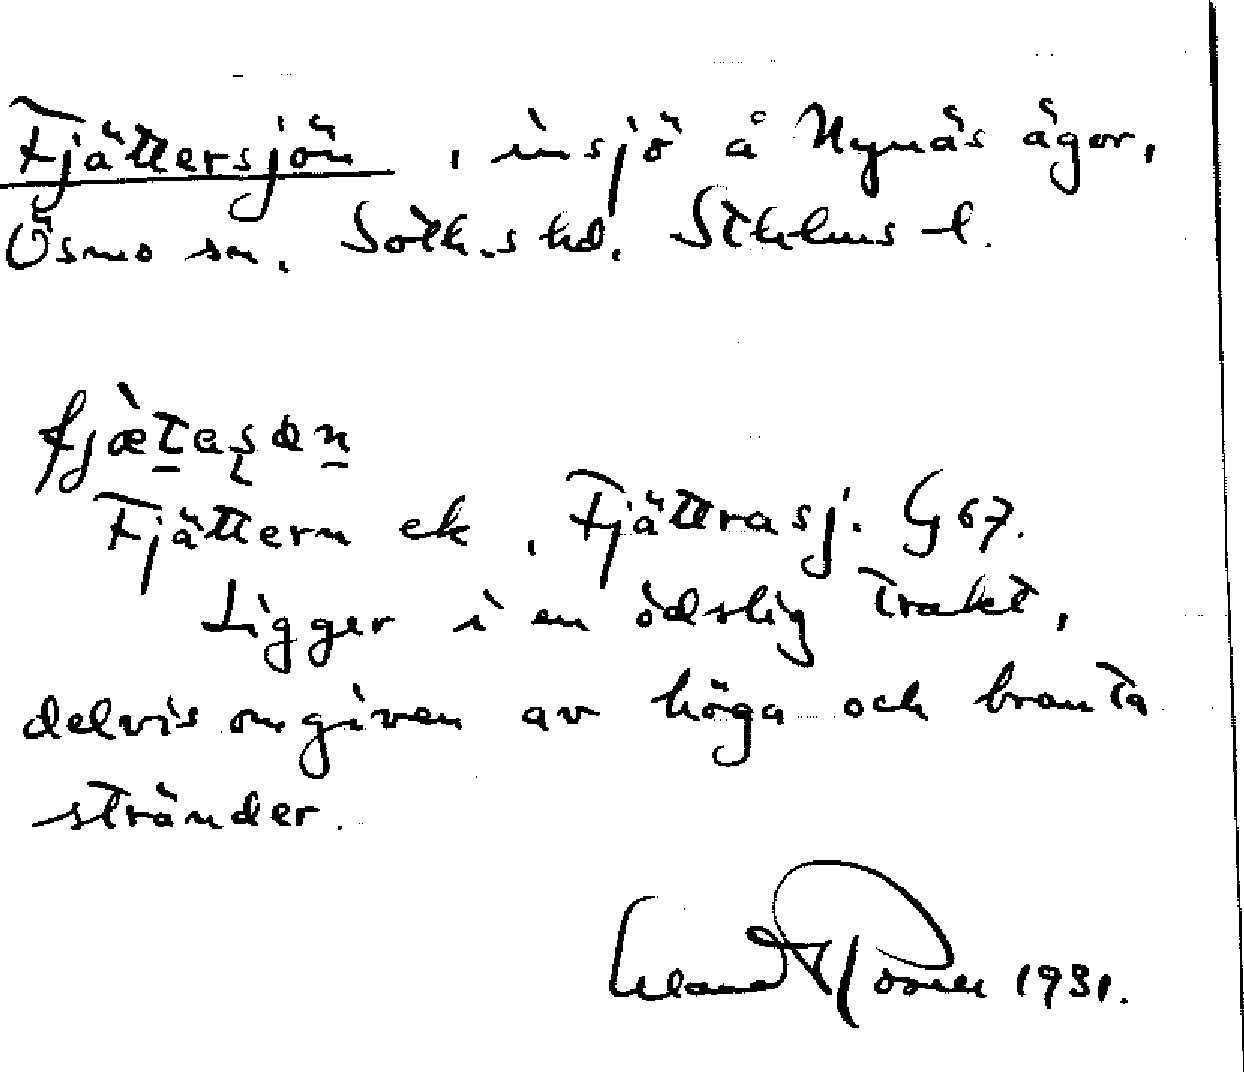 Fjättersjön, insjö å Nynäs ägor,
Ösmo sn. Soth.s hd. Sthlms l.
fjæ̀taṣøn
Fjättern ek, Fjättrasj. G 67.
Ligger i en ödslig trakt,
delvis omgiven av höga och branta
stränder.
1931.